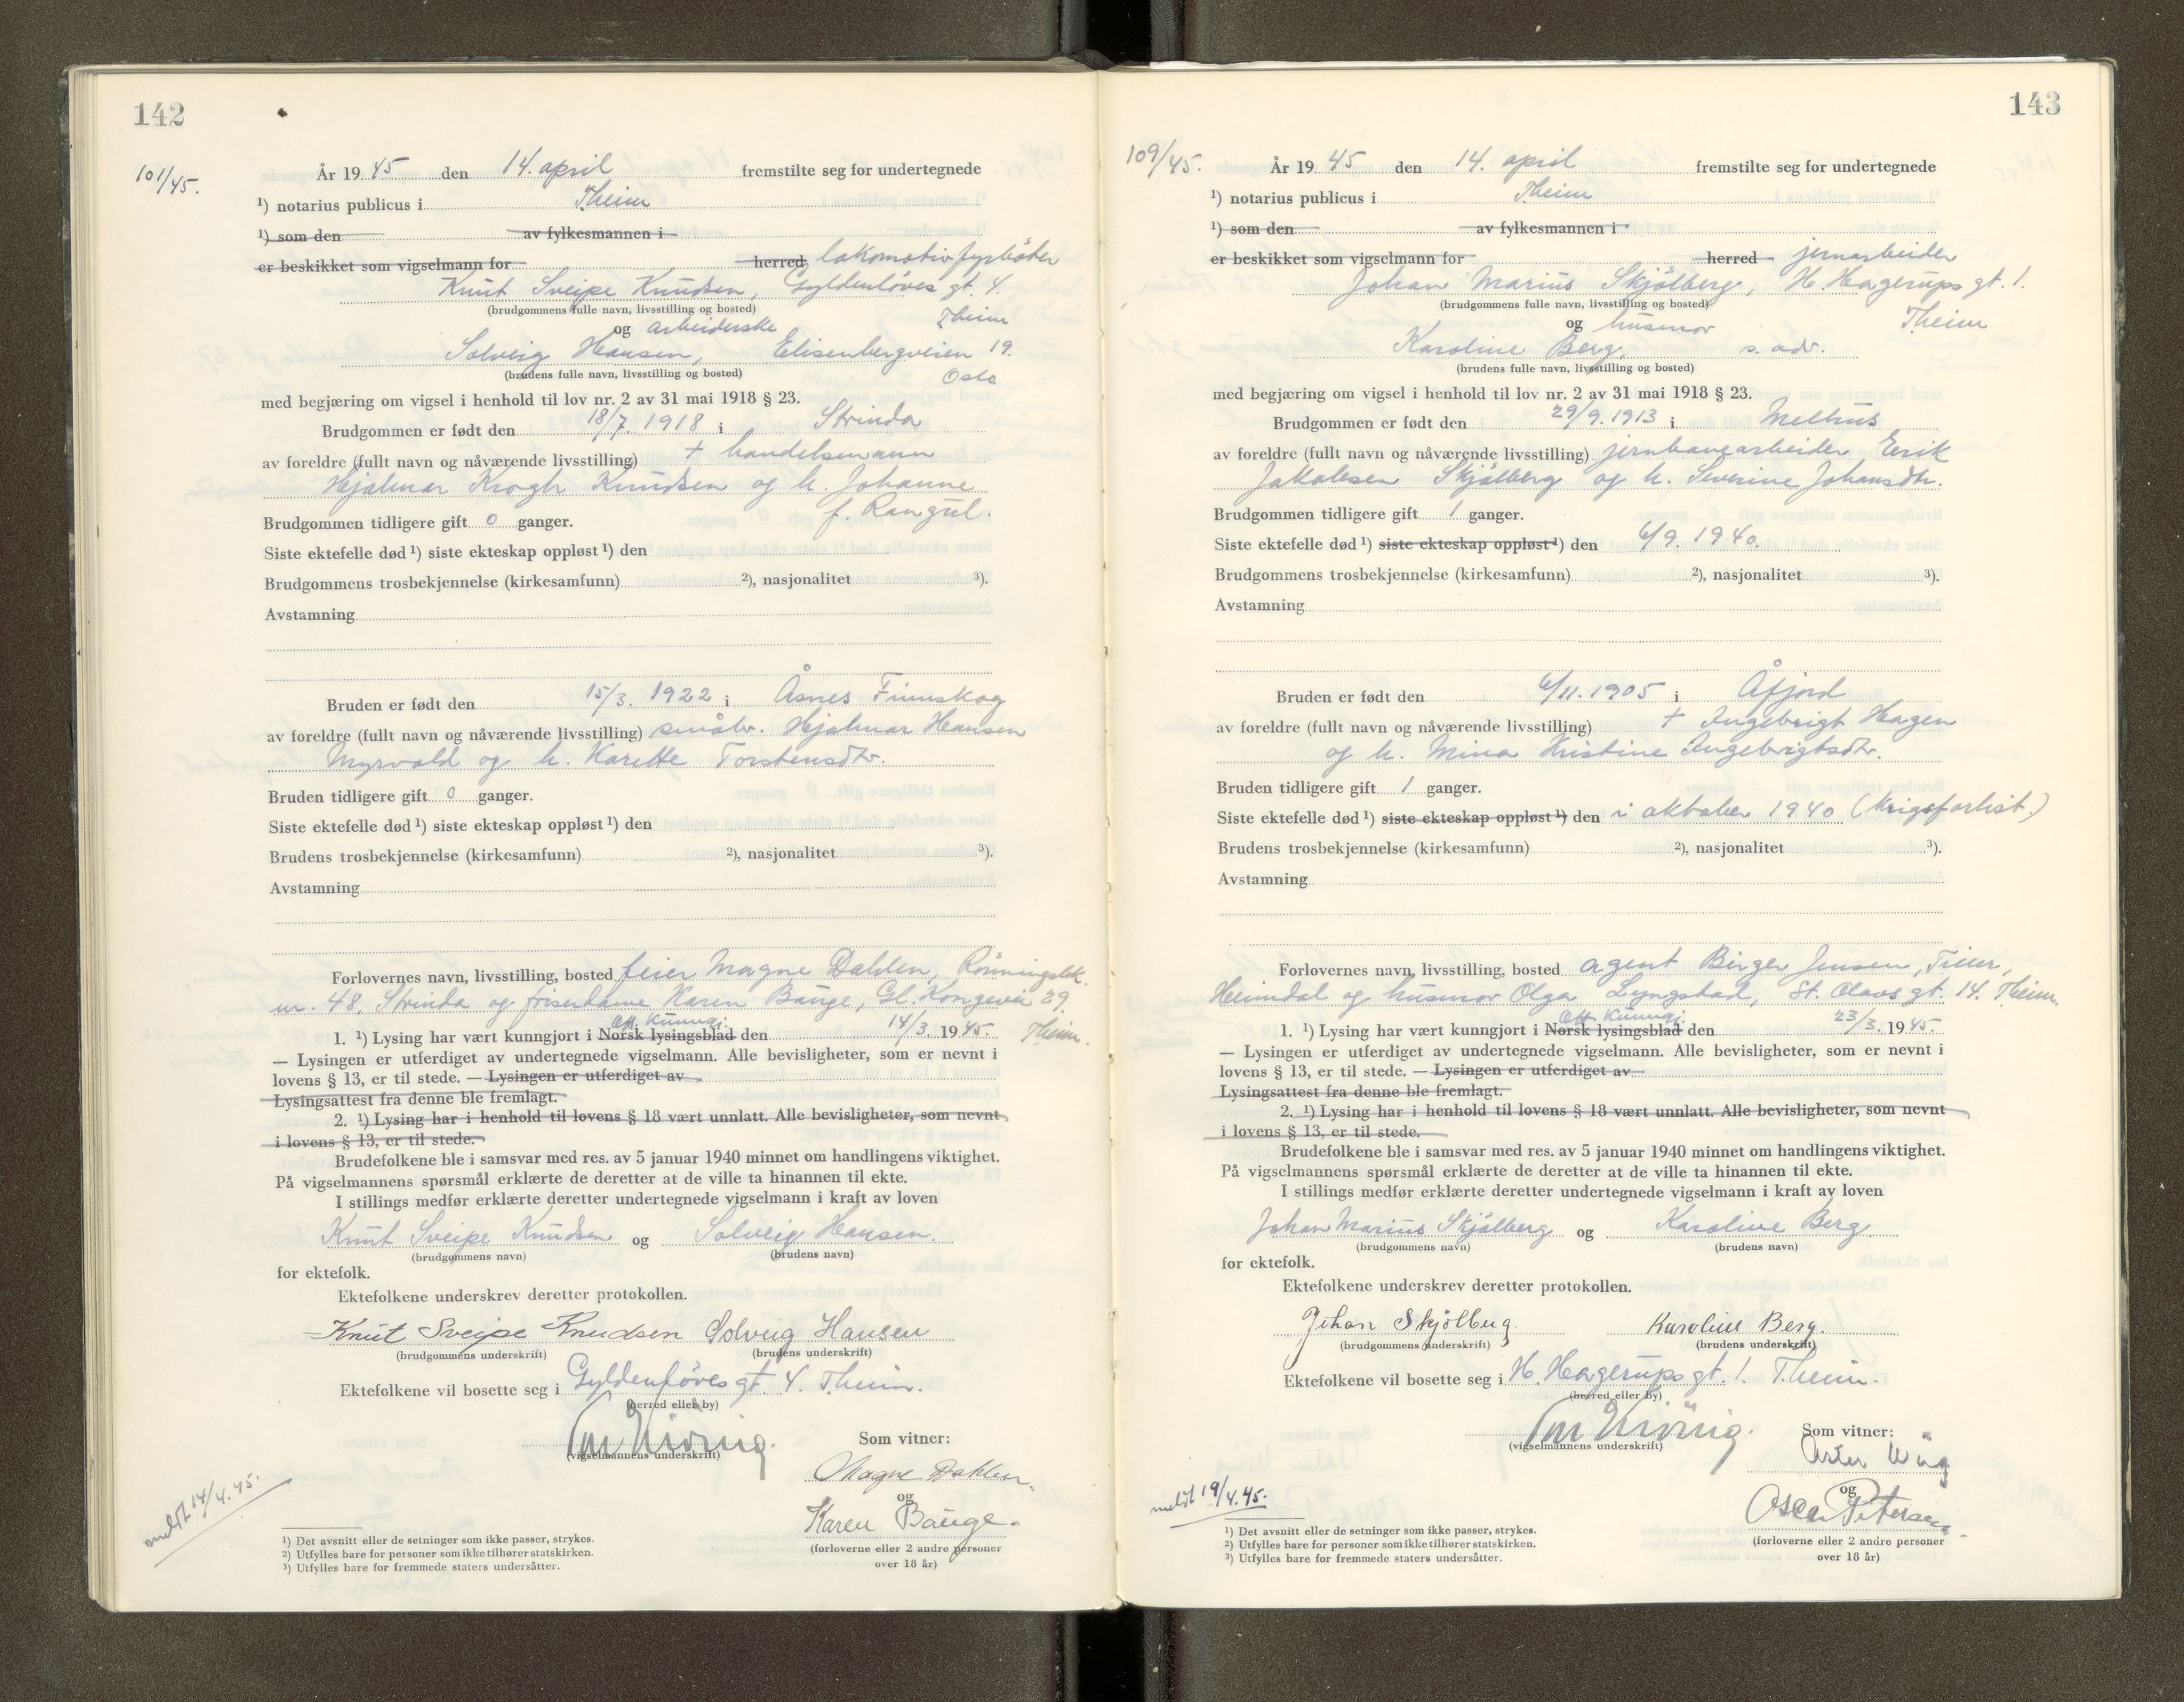 142
101/45.
År 1945 den 14. april fremstilte seg for undertegnede
¹) notarius publicus i Theim
¹) som den av fylkesmannen i
er beskikket som vigselmann for herred lokomotivfyrbøter
Knut Sveipe Knudsen, Gyldenløves gt. 4.
(brudgommens fulle navn, livsstilling og bosted) Theim
og arbeiderske
Solveig Hansen, Elisenbergveien 19.
(brudens fulle navn, livsstilling og bosted) Oslo
med begjæring om vigsel i henhold til lov nr. 2 av 31 mai 1918 § 23.
Brudgommen er født den 18/7. 1918 i Strinda
av foreldre (fullt navn og nåværende livsstilling) + handelsmann
Hjalmar Krogh Knudsen og h. Johanne
f. Rangul.
Brudgommen tidligere gift 0 ganger.
Siste ektefelle død ¹) siste ekteskap oppløst ¹) den
Brudgommens trosbekjennelse (kirkesamfunn) ²), nasjonalitet ³).
Avstamning
Bruden er født den 15/3. 1922 i Åsnes Finnskog
av foreldre (fullt navn og nåværende livsstilling) småbr. Hjalmar Hansen
Myrvold og h. Karette Torstensdtr.
Bruden tidligere gift 0 ganger.
Siste ektefelle død ¹) siste ekteskap oppløst ¹) den
Brudens trosbekjennelse (kirkesamfunn) ²), nasjonalitet ³).
Avstamning
Forlovernes navn, livsstilling, bosted feier Magne Dahlen, Rönningsbk.
nr. 48, Strinda og frisørdame Karen Bauge, Gl. Kongevei 29.
Off. Kunngj.
1. ¹) Lysing har vært kunngjort i Norsk lysingsblad den 14/3. 1945. Theim.
— Lysingen er utferdiget av undertegnede vigselmann. Alle bevisligheter, som er nevnt i
lovens § 13, er til stede. — Lysingen er utferdiget av
Lysingsattest fra denne ble fremlagt.
2. ¹) Lysing har i henhold til lovens § 18 vært unnlatt. Alle bevisligheter, som nevnt
i lovens § 13, er til stede.
Brudefolkene ble i samsvar med res. av 5 januar 1940 minnet om handlingens viktighet.
På vigselmannens spørsmål erklærte de deretter at de ville ta hinannen til ekte.
I stillings medfør erklærte deretter undertegnede vigselmann i kraft av loven
Knut Sveipe Knudsen og Solveig Hansen.
(brudgommens navn) (brudens navn)
for ektefolk.
Ektefolkene underskrev deretter protokollen.
Knut Sveipe Knudsen Solveig Hansen
(brudgommens underskrift) (brudens underskrift)
Ektefolkene vil bosette seg i Gyldenløves gt. 4. Theim.
(herred eller by)
(vigselmannens underskrift)
Som vitner:
Magne Dahlen.
og
Karen Bauge.
(forloverne eller 2 andre personer
over 18 år)
meldt 14/4.45.
¹) Det avsnitt eller de setninger som ikke passer, strykes.
²) Utfylles bare for personer som ikke tilhører statskirken.
³) Utfylles bare for fremmede staters undersåtter.
143
109/45.
År 1945 den 14. april fremstilte seg for undertegnede
¹) notarius publicus i Theim
¹) som den av fylkesmannen i
er beskikket som vigselmann for herred jernarbeider
Johan Marius Skjølberg, H. Hagerups gt. 1.
(brudgommens fulle navn, livsstilling og bosted) Theim
og husmor
Karoline Berg, s. adr.
(brudens fulle navn, livsstilling og bosted)
med begjæring om vigsel i henhold til lov nr. 2 av 31 mai 1918 § 23.
Brudgommen er født den 29/9. 1913 i Melhus
av foreldre (fullt navn og nåværende livsstilling) jernbanearbeider Erik
Jakobsen Skjølberg og h. Severine Johansdtr.
Brudgommen tidligere gift 1 ganger.
Siste ektefelle død ¹) siste ekteskap oppløst ¹) den 6/9. 1940.
Brudgommens trosbekjennelse (kirkesamfunn) ²), nasjonalitet ³).
Avstamning
Bruden er født den 6/11. 1905 i Åfjord
av foreldre (fullt navn og nåværende livsstilling) + Ingebrigt Hagen
og h. Mina Kristine Ingebrigtsdtr.
Bruden tidligere gift 1 ganger.
Siste ektefelle død ¹) siste ekteskap oppløst ¹) den i oktober 1940 (krigsforlist.)
Brudens trosbekjennelse (kirkesamfunn) ²), nasjonalitet ³).
Avstamning
Forlovernes navn, livsstilling, bosted agent Birger Jensen, Tiller,
Heimdal og husmor Olga Lyngstad, St. Olavs gt. 14. Theim.
Off. Kunngj.
1. ¹) Lysing har vært kunngjort i Norsk lysingsblad den 23/3. 1945.
— Lysingen er utferdiget av undertegnede vigselmann. Alle bevisligheter, som er nevnt i
lovens § 13, er til stede. — Lysingen er utferdiget av
Lysingsattest fra denne ble fremlagt.
2. ¹) Lysing har i henhold til lovens § 18 vært unnlatt. Alle bevisligheter, som nevnt
i lovens § 13, er til stede.
Brudefolkene ble i samsvar med res. av 5 januar 1940 minnet om handlingens viktighet.
På vigselmannens spørsmål erklærte de deretter at de ville ta hinannen til ekte.
I stillings medfør erklærte deretter undertegnede vigselmann i kraft av loven
Johan Marius Skjølberg og Karoline Berg.
(brudgommens navn) (brudens navn)
for ektefolk.
Ektefolkene underskrev deretter protokollen.
Johan Skjølberg. Karoline Berg.
(brudgommens underskrift) (brudens underskrift)
Ektefolkene vil bosette seg i H. Hagerups gt. 1. Theim.
(herred eller by)
(vigselmannens underskrift)
Som vitner:
og
Oscar Petersen.
(forloverne eller 2 andre personer
over 18 år)
meldt 19/4.45.
¹) Det avsnitt eller de setninger som ikke passer, strykes.
²) Utfylles bare for personer som ikke tilhører statskirken.
³) Utfylles bare for fremmede staters undersåtter.